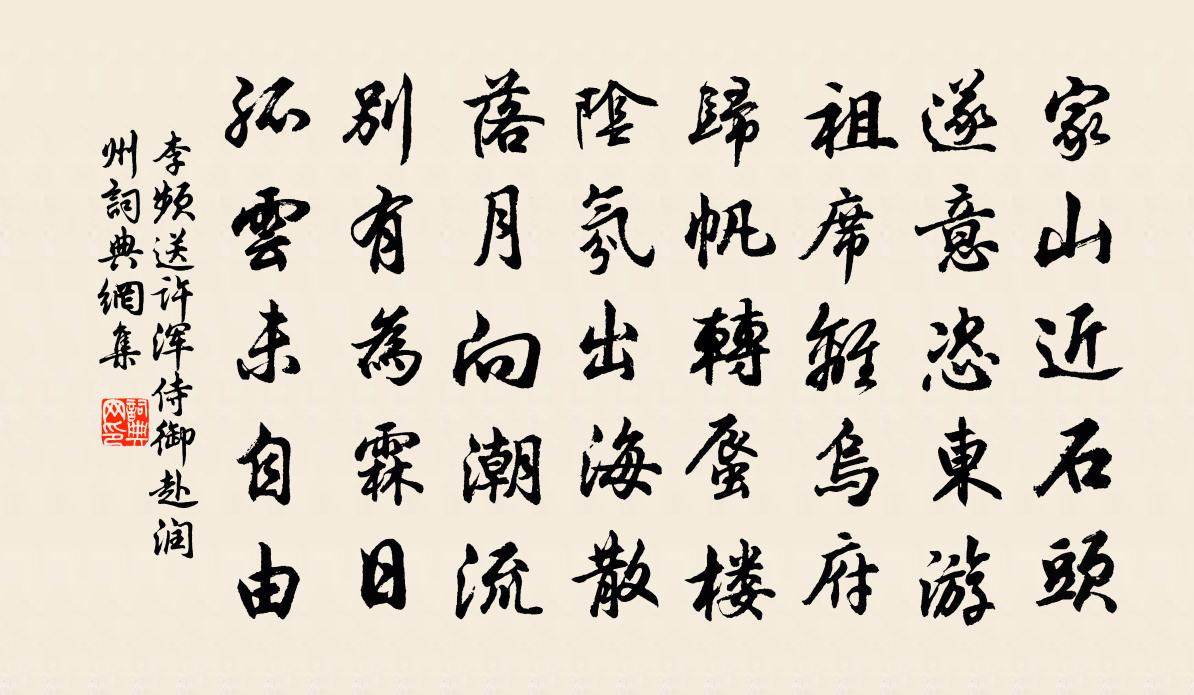 家山近石頭
遂意恣東游
祖席離烏府
歸帆轉蜃楼
陰氛出海散
落月向潮流
別有為霖日
孤雲未自由
李頻送许浑侍御赴润
州詞典網集
詞典
网印